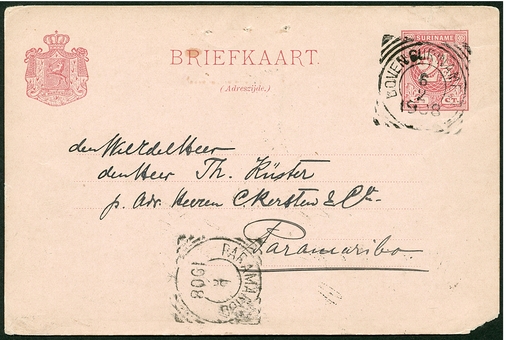 BRIEFKAART.
(Adreszijde.)
SURINAME
BOVEN SURINAME
6
2
1908
den WelEdelHeer
den Heer Th. Küster
p. Adr. Heeren C. Kersten & Co.
Paramaribo
PARAMARIBO
1908